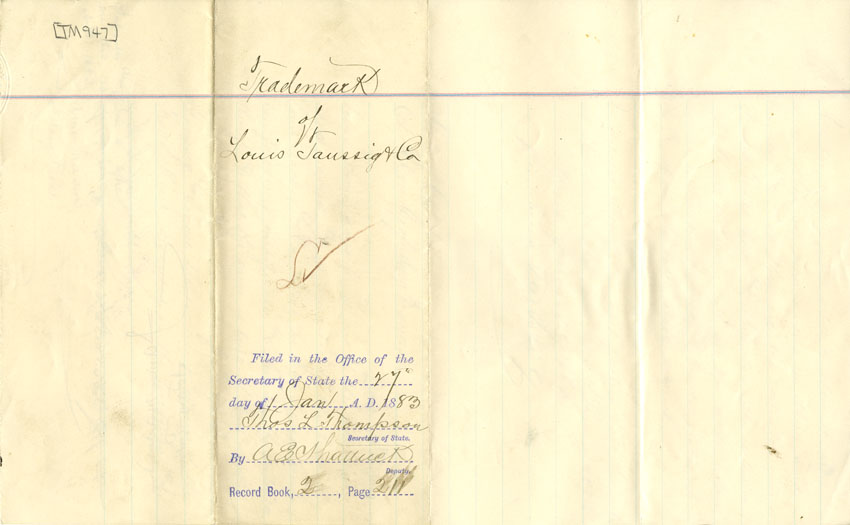 [TM947]
Trademark
of
Louis Taussig & Co
Filed in the Office of the
Secretary of State the 27"
day of Jan A. D. 1883
Thos L. Thompson
Secretary of State.
By A E Shattuck
Deputy.
Record Book, 2, Page